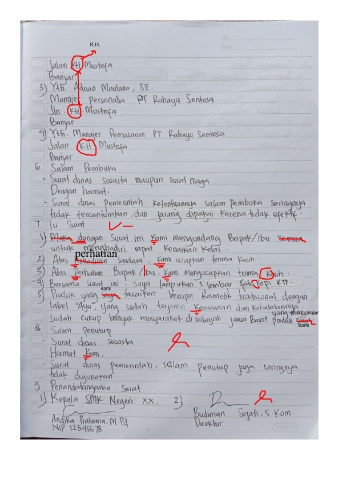 K.H.
Jalan KH Mustofa
Banjar
3) Yth. Adnan Maulana, SE.
Manajer Personalia PT Rabayu Sentosa
Jln. KH Mustofa
Banjar
Yth. Manajer Pemasaran PT Rabayu Sentosa
Jalan KH Mustofa
Banjar
6 Salam Pembuka
- Surat dinas swasta maupun surat niaga
Dengan hormat.
- Surat dinas Pemerintah Ketentuannya salam pembuka seringnya
tidak tercantumkan dan jarang dipakai karena tidak efektif.
7 Isi Surat
1) dengan surat ini kami mengundang Bapak/Ibu
untuk menghadiri rapat
perhatian
2) Atas Saudara, kami ucapkan terima kasih
3) Atas Perhatian Bapak/Ibu, kami mengucapkan terima kasih
4) Bersama surat ini, saya lampirkan 1 lembar fotokopi KTP.
kami
5) Produk yang tawarkan berupa kosmetik tradisional dengan
label "Ayu" yang sudah terjamin keamanan dan kehalalannya
yang menggunakan
sudah cukup banyak masyarakat di wilayah Jawa Barat produk
kami
8 Salam Penutup
Surat dinas swasta
Hormat kami,
Surat dinas pemerintah, salam penutup juga seringnya
tidak digunakan
9 Penandatanganan Surat
1) Kepala SMK Negeri XX. 2)
Andika Pratama, M.Pd
Budiman S.Kom
Direktur